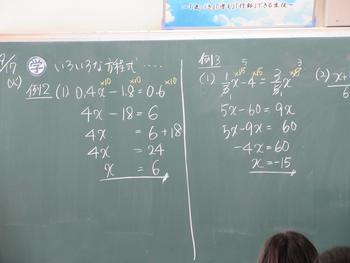 「行動」できる生徒
/17 学 いろいろな方程式 ・・・・
(火)
×10 ×10 ×10
例2 (1) 0.4x - 1.8 = 0.6
4x - 18 = 6
4x = 6 + 18
4x = 24
x = 6
例3
5 ×15 ×15 3 ×15
(1) 1/3 x - 4 = 3/5 x
5x - 60 = 9x
5x - 9x = 60
-4x = 60
x = -15
(2) x+
6